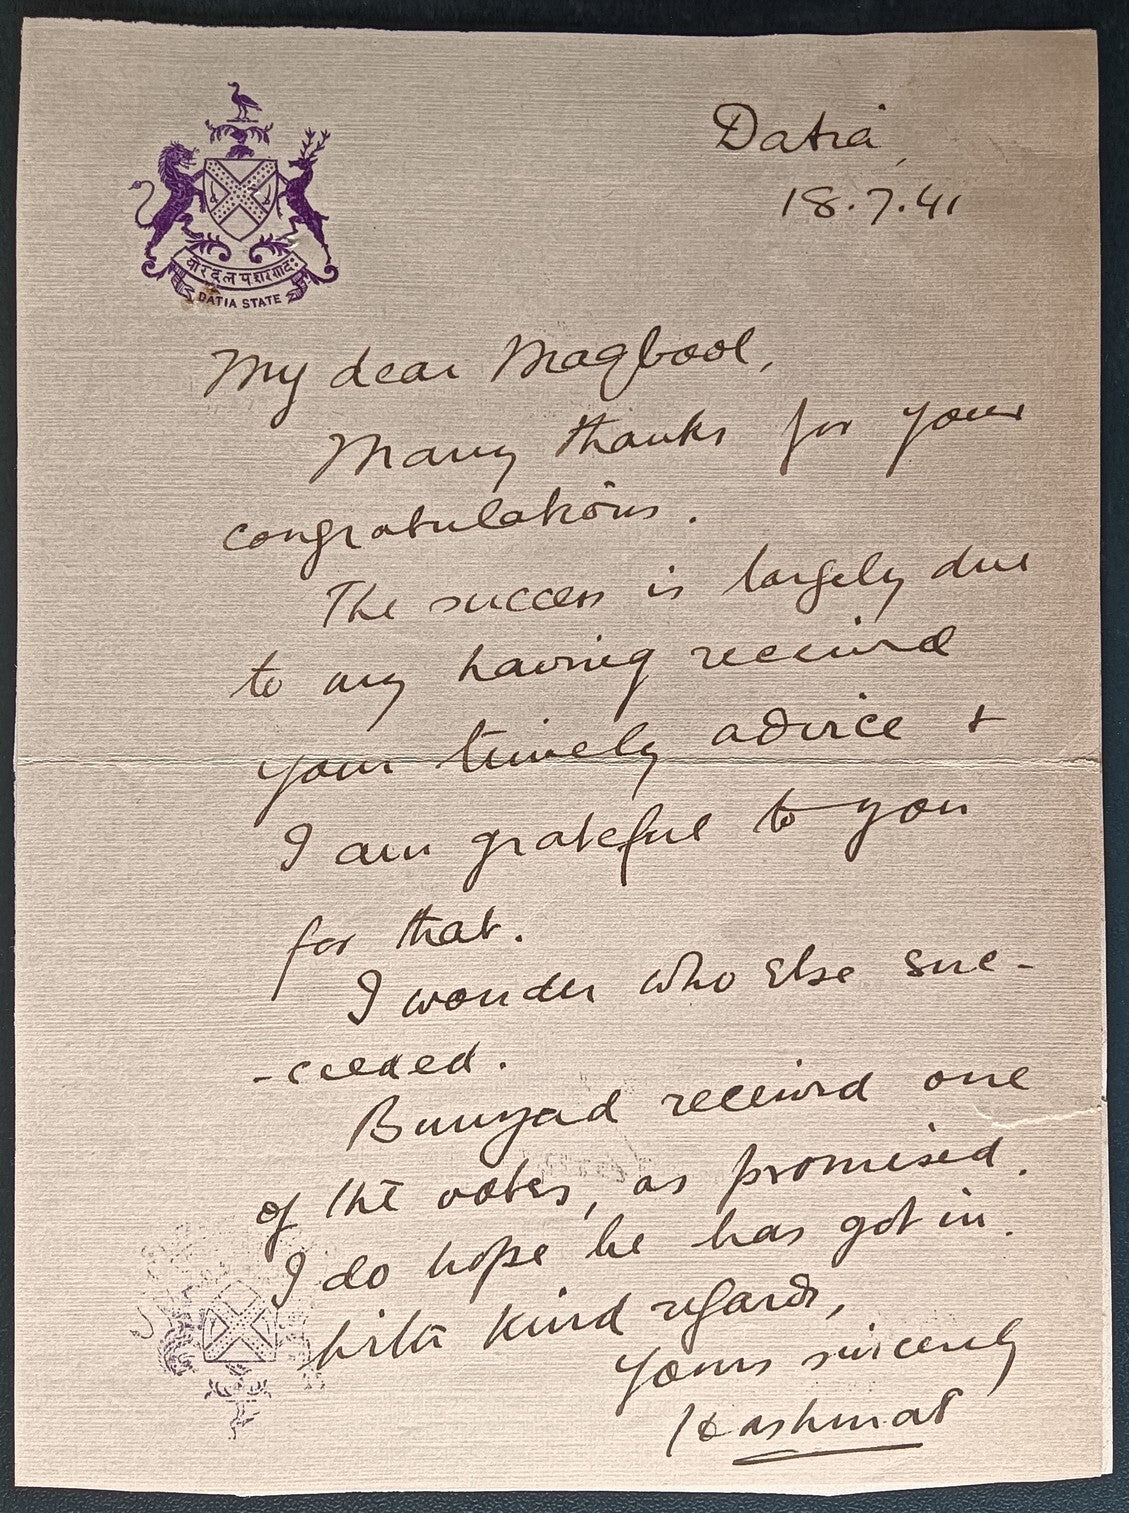 Datia,
18.7.41
वीर दलप शरणदः
DATIA STATE
My dear Maqbool,
Many thanks for your
congratulations.
The success is largely due
to my having received
your timely advice +
I am grateful to you
for that.
I wonder who else suc-
-ceeded.
Bunyad received one
of the votes, as promised.
I do hope he has got in.
With kind regards,
Yours sincerely
Hashmat